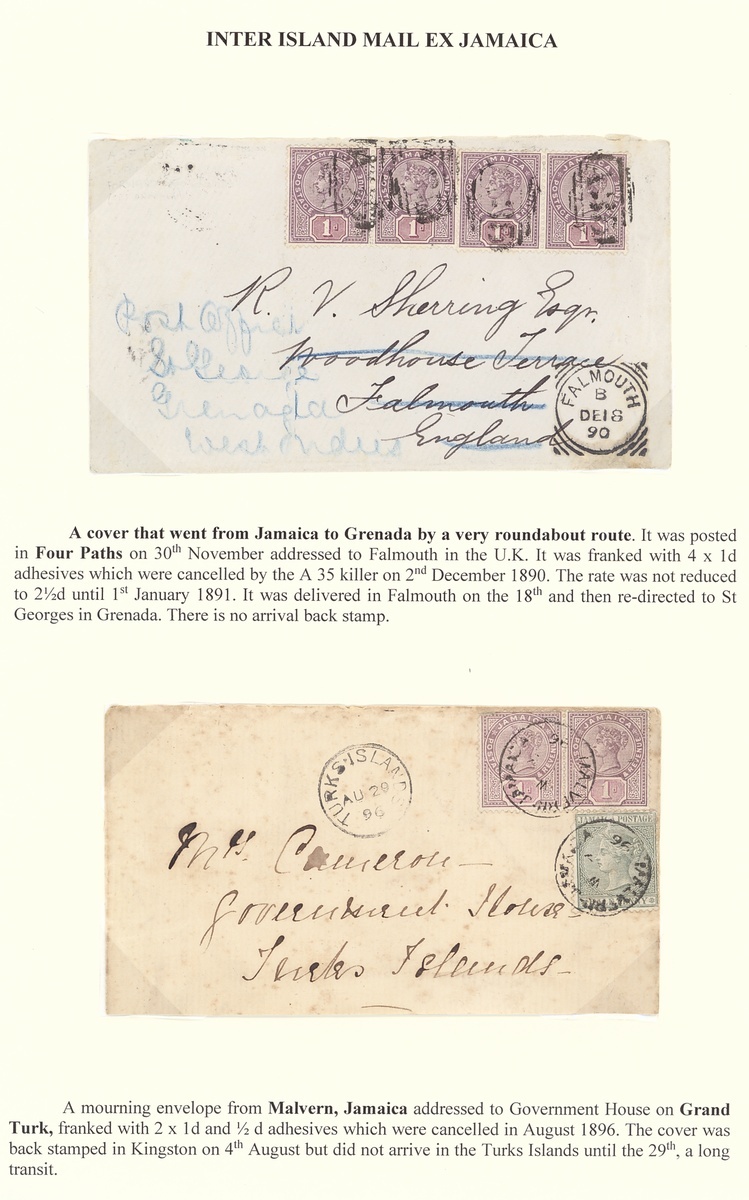 INTER ISLAND MAIL EX JAMAICA
JAMAICA JAMAICA JAMAICA JAMAICA
1D 1D 1D 1D
R. V. Sherring Esqr.
Woodhouse Terrace
Falmouth
England
Post Office
St George
Grenada
West Indies
FALMOUTH
B
DE 18
90
A cover that went from Jamaica to Grenada by a very roundabout route. It was posted
in Four Paths on 30th November addressed to Falmouth in the U.K. It was franked with 4 x 1d
adhesives which were cancelled by the A 35 killer on 2nd December 1890. The rate was not reduced
to 2½d until 1st January 1891. It was delivered in Falmouth on the 18th and then re-directed to St
Georges in Grenada. There is no arrival back stamp.
JAMAICA JAMAICA
1D 1D
TURKS-ISLAND
AU 29
96
JAMAICA POSTAGE
Mrs. Cameron—
Government House
Turks Islands—
A mourning envelope from Malvern, Jamaica addressed to Government House on Grand
Turk, franked with 2 x 1d and ½ d adhesives which were cancelled in August 1896. The cover was
back stamped in Kingston on 4th August but did not arrive in the Turks Islands until the 29th, a long
transit.